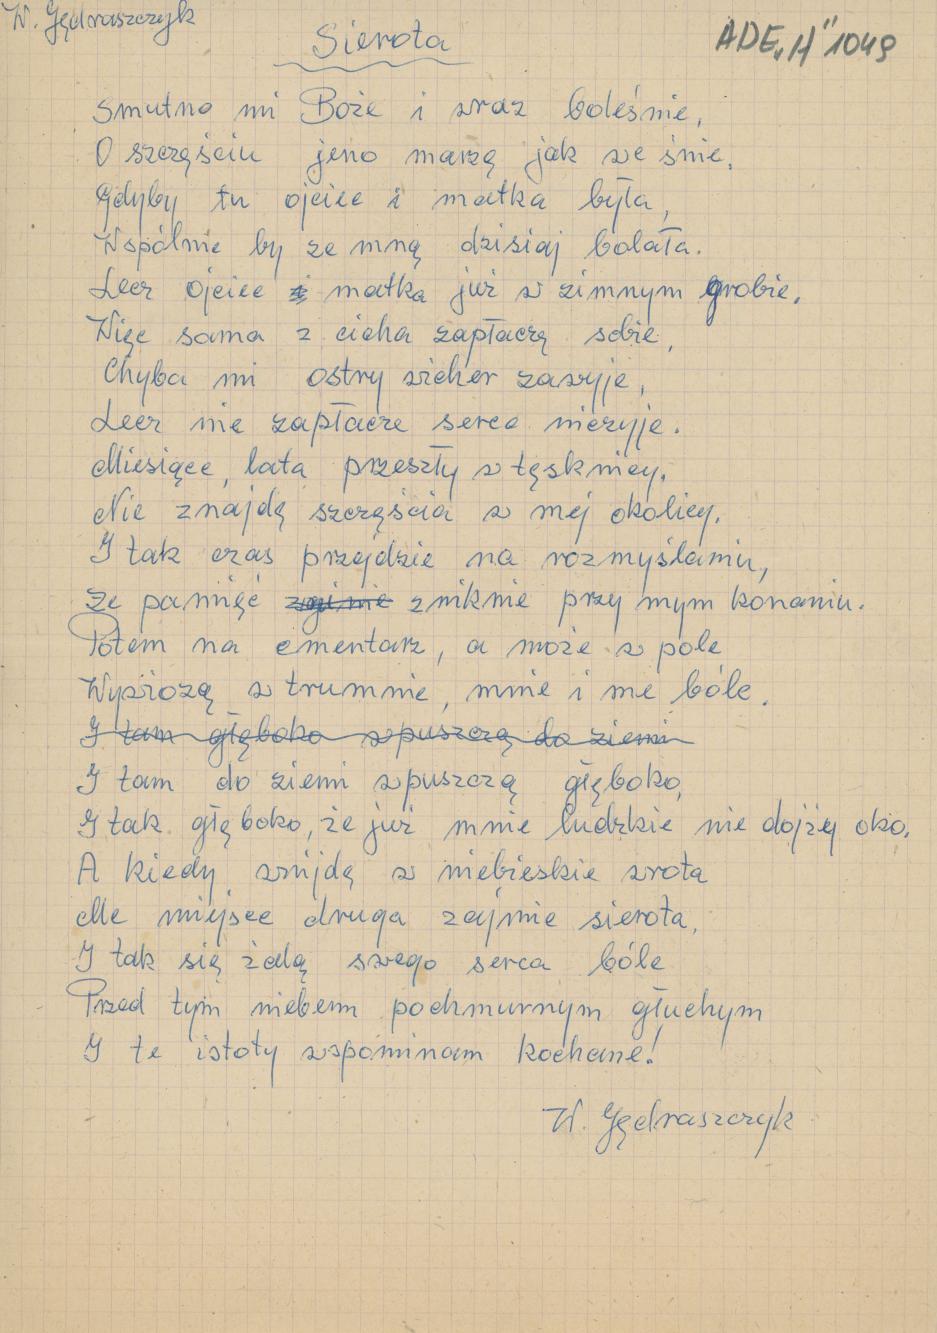 W. Jędraszczyk
Sierota
ADE„H" 1049
Smutno mi Boże i wraz boleśnie,
O szczęściu jeno marzę jak we śnie.
Gdyby tu ojciec i matka była,
Wspólnie by ze mną dzisiaj bolała.
Lecz ojciec i matka już w zimnym grobie.
Więc sama z cicha zapłaczę sobie,
Chyba mi ostry wicher zawyje,
Lecz nie zapłacze serce niczyje.
Miesiące, lata przeszły w tęsknicy.
Nie znajdę szczęścia w mej okolicy.
I tak czas przejdzie na rozmyślaniu,
Że pamięć zginie zniknie przy mym konaniu.
Potem na cmentarz, a może w pole
Wywiozą w trumnie, mnie i me bóle.
I tam głęboko wpuszczą do ziemi
I tam do ziemi wpuszczą głęboko,
I tak głęboko, że już mnie ludzkie nie dojży oko.
A kiedy wnijdę w niebieskie wrota
Me miejsce druga zajmie sierota,
I tak się żalą swego serca bóle
Przed tym niebem pochmurnym głuchym
I te istoty wspominam kochane!
W. Jędraszczyk